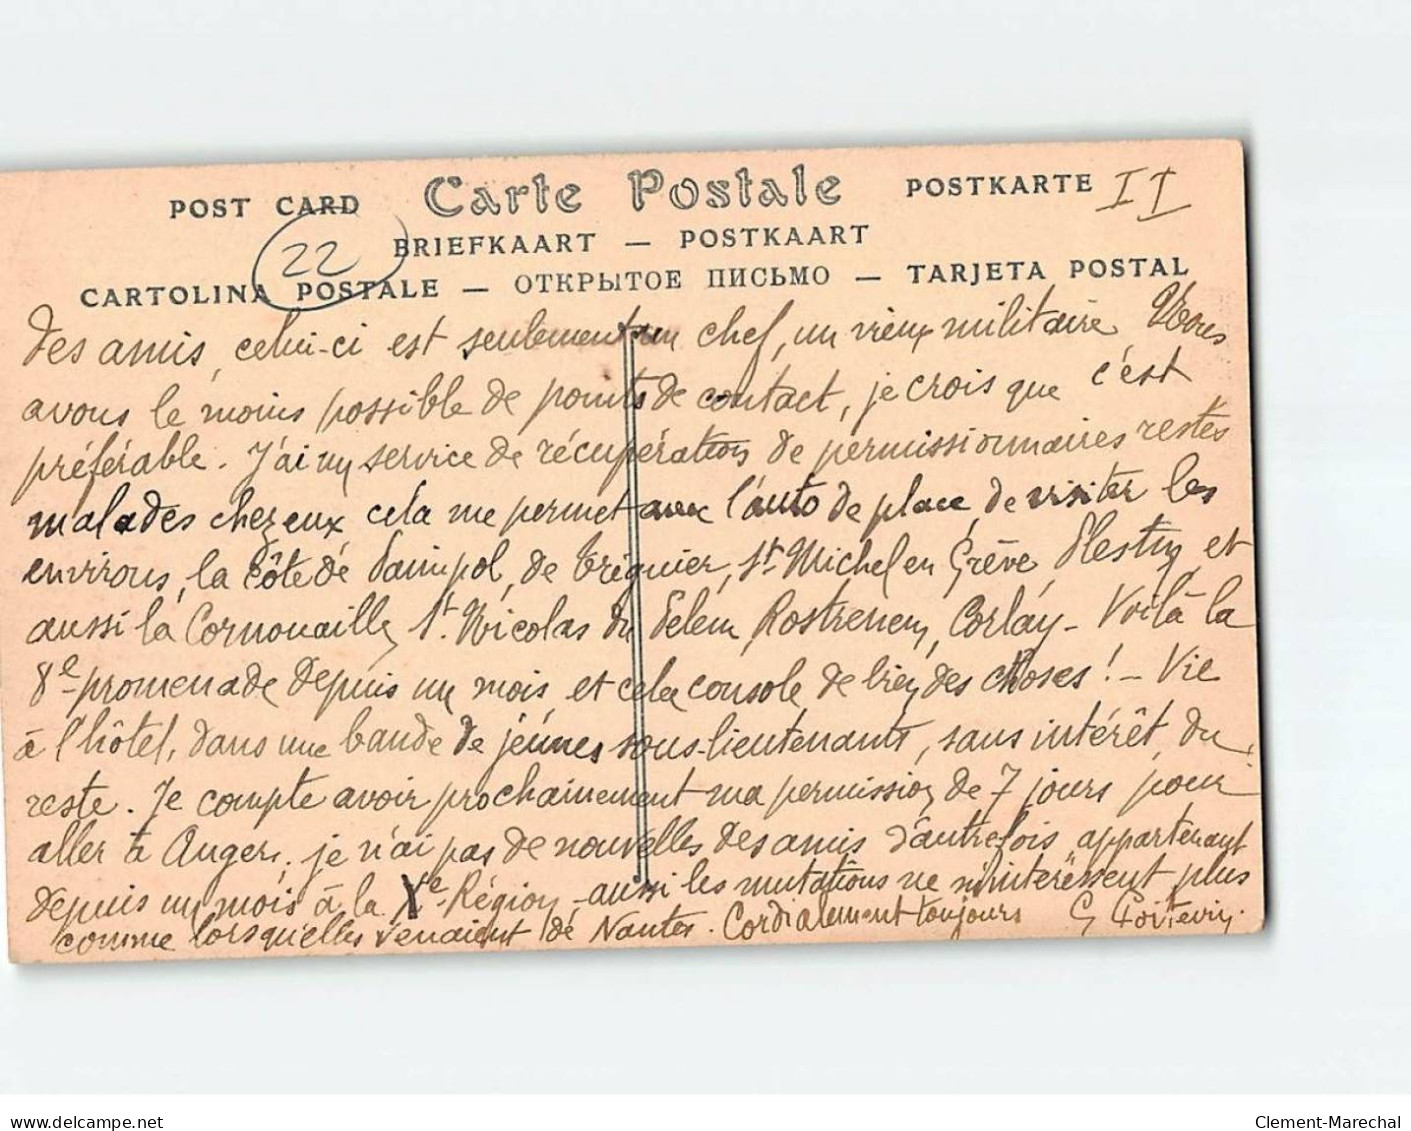 POST CARD Carte Postale POSTKARTE II
22 BRIEFKAART — POSTKAART
CARTOLINA POSTALE — ОТКРЫТОЕ ПИСЬМО — TARJETA POSTAL
des amis, celui-ci est seulement un chef, un vieux militaire. Nous
avons le moins possible de points de contact, je crois que c'est
préférable. J'ai un service de récupération de permissionnaires restés
malades chez eux cela me permet avec l'auto de place, de visiter les
environs, la côte de Paimpol, de Tréguier, St Michel en Grève Plestin, et
aussi la Cornouaille, St Nicolas du Pelem, Rostrenen, Corlay - Voilà la
8e promenade depuis un mois, et cela console de bien des choses ! - Vie
à l'hôtel, dans une bande de jeunes sous-lieutenants, sans intérêt, du
reste. Je compte avoir prochainement ma permission de 7 jours pour
aller à Angers, je n'ai pas de nouvelles des amis d'autrefois, appartenant
depuis un mois à la Xe Région, aussi les mutations ne m'intéressent plus
comme lorsqu'elles venaient de Nantes. Cordialement toujours G Poitevin.
delcampe.net
Clement-Marechal